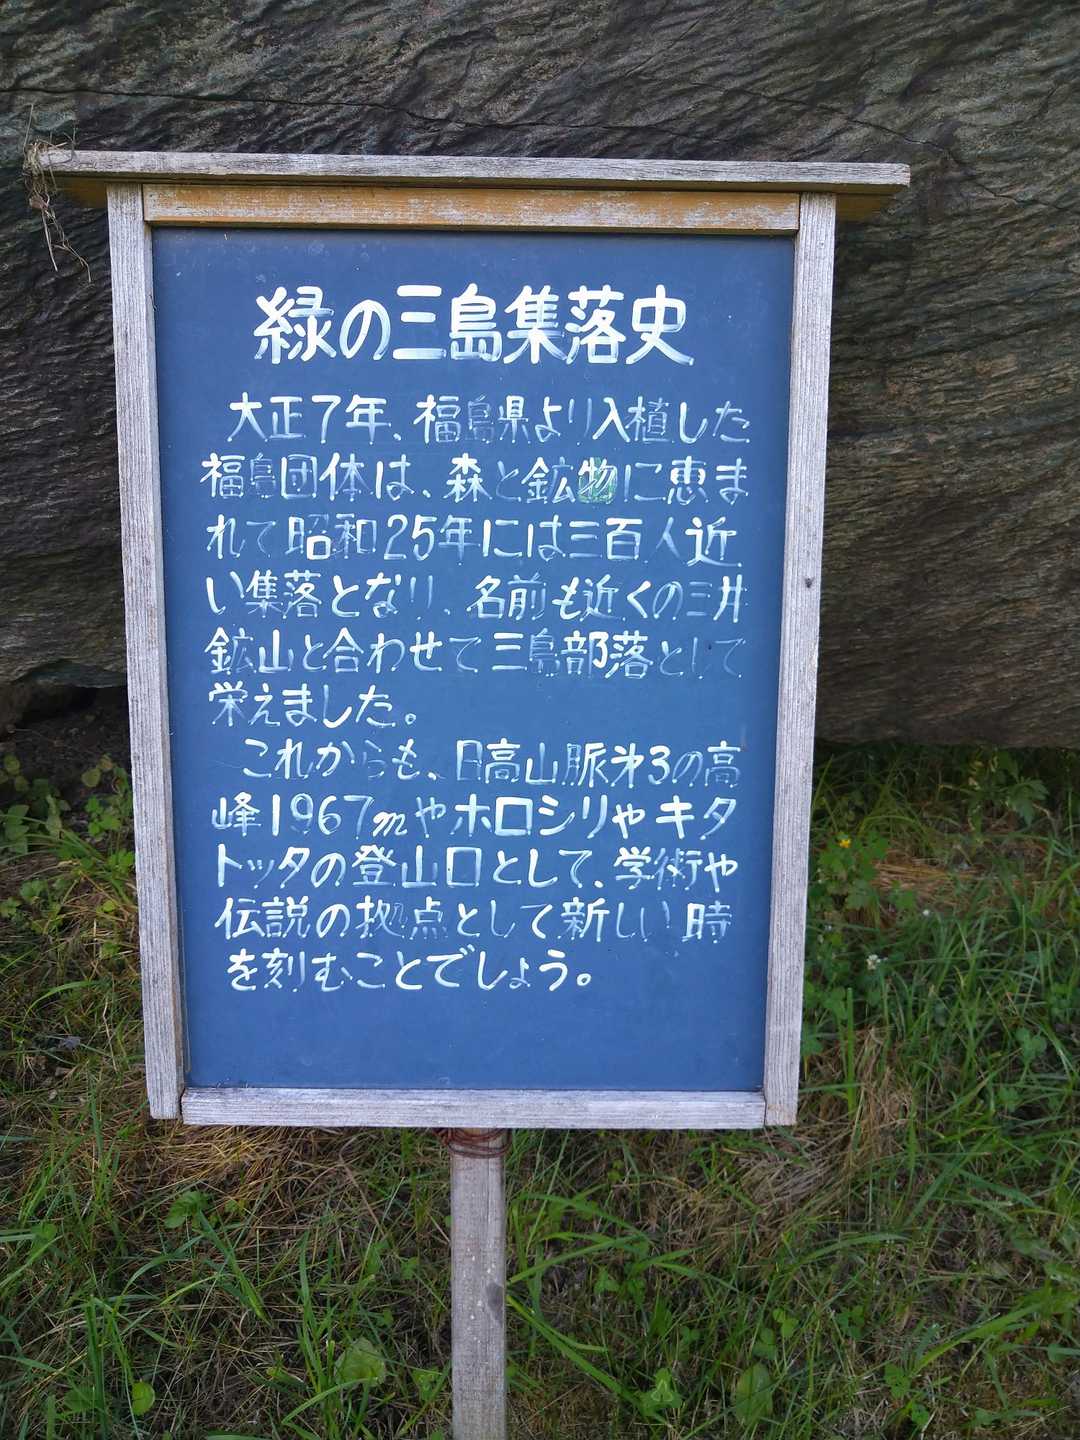 緑の三島集落史
大正7年、福島県より入植した
福島団体は、森と鉱物に恵ま
れて昭和25年には三百人近
い集落となり、名前も近くの三井
鉱山と合わせて三島部落として
栄えました。
これからも、日高山脈㐧3の高
峰1967mやホロシリやキタ
トッタの登山口として、学術や
伝説の拠点として新しい時
を刻むことでしょう。